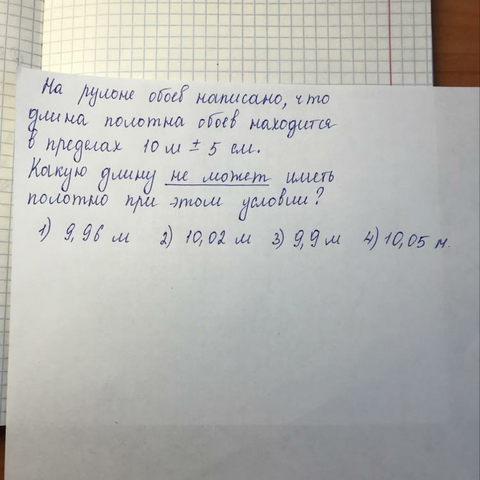 На рулоне обоев написано, что
длина полотна обоев находится
в пределах 10 м ± 5 см.
Какую длину не может иметь
полотно при этом условии?
1) 9,96 м 2) 10,02 м 3) 9,9 м 4) 10,05 м.